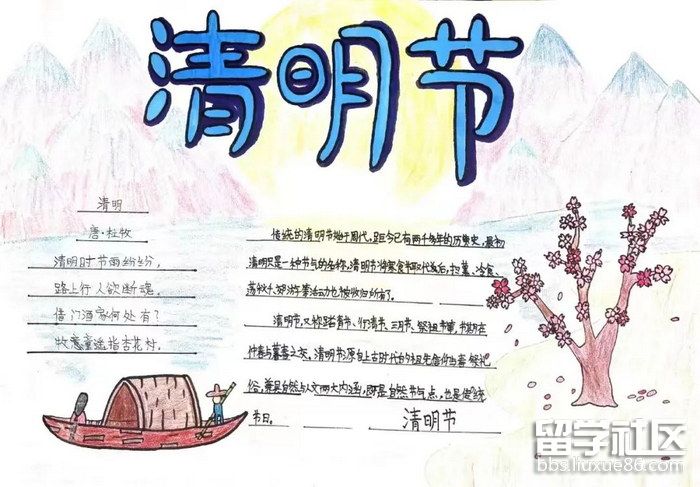 清明节
清明
唐·杜牧
清明时节雨纷纷,
路上行人欲断魂。
借门酒家何处有?
童遥指杏花村.
传统的清明节始于周代,距今已有两千多年的历史,最初
清明只是一种节气的名称,清明节将寒食节取代后,扫墓、冷食、
荡秋千、郊游等活动也被收归所有了。
清明节,又称踏青节、行清节、三月节、祭祖节等,节期在
仲春与暮春之交。清明节源自上古时代的祖先信仰与春祭礼
俗,兼具自然与人文两大内涵,既是自然节气点,也是传统
节日。
清明节
留学社区
bbs.liuxue86.com